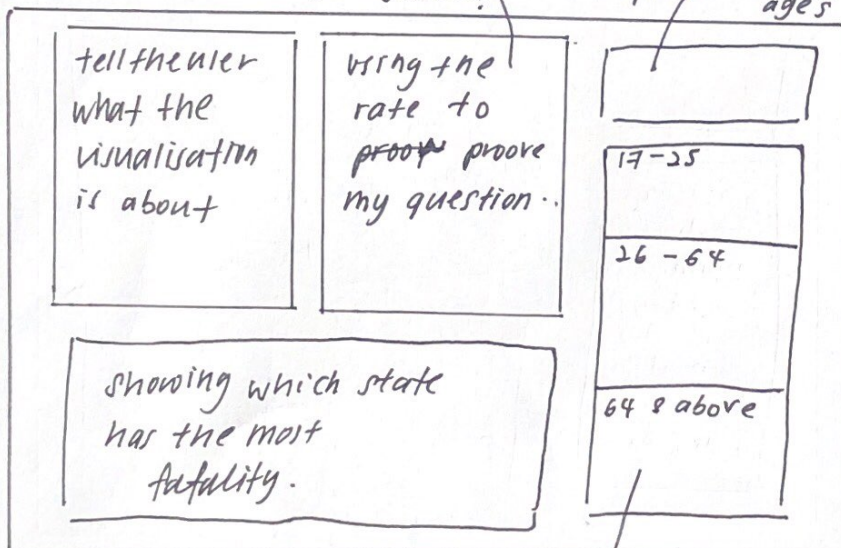 ages
tell the user
what the
visualisation
is about
using the
rate to
proove
my question..
17-25
26-64
64 & above
showing which state
has the most
fatality.